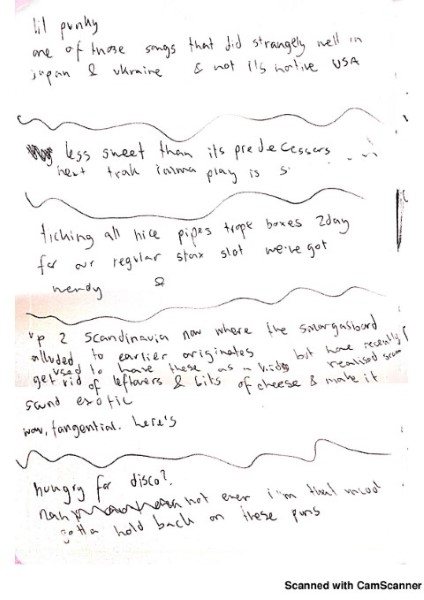 lil punky
one of those songs that did strangely well in
japan & ukraine & not it's native USA
less sweet than its predecessors
next trak imma play is s
ticking all nice pipes trope boxes 2day
for our regular stax slot we've got
wendy
up 2 scandinavia now where the smorgasbord
alluded to earlier originates but have recently
used to have these as a kid realised scam
get rid of leftovers & bits of cheese & make it
sound exotic
wow, tangential. here's
hungry for disco?
nah not ever i'm that
gotta hold back on these puns
Scanned with CamScanner